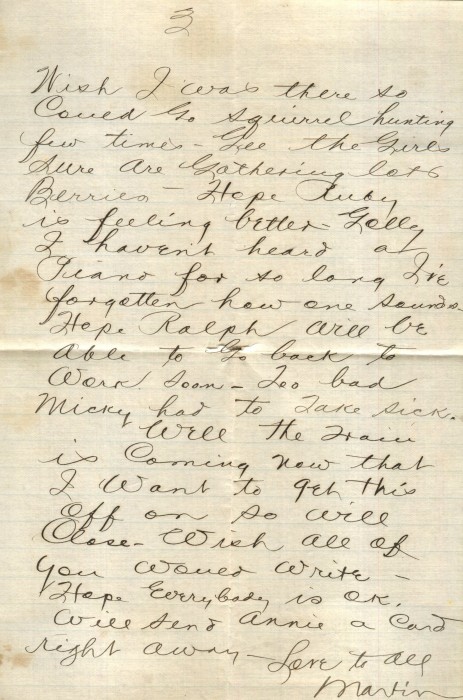 3
Wish I was there so
Could Go squirrel hunting
few times - Gee the Girls
Sure Are Gathering lots
Berries - Hope Ruby
is feeling better - Golly
I havent heard a
Piano for so long I've
forgotten how one sounds.
Hope Ralph will be
Able to Go back to
Work Soon - Too bad
Micky had to Take sick.
Well the Train
is Coming now that
I Want to get this
Off on so will
Close - Wish all of
You Would Write -
Hope Everybody is OK.
Will send Annie a Card
right away - Love to all
Martin